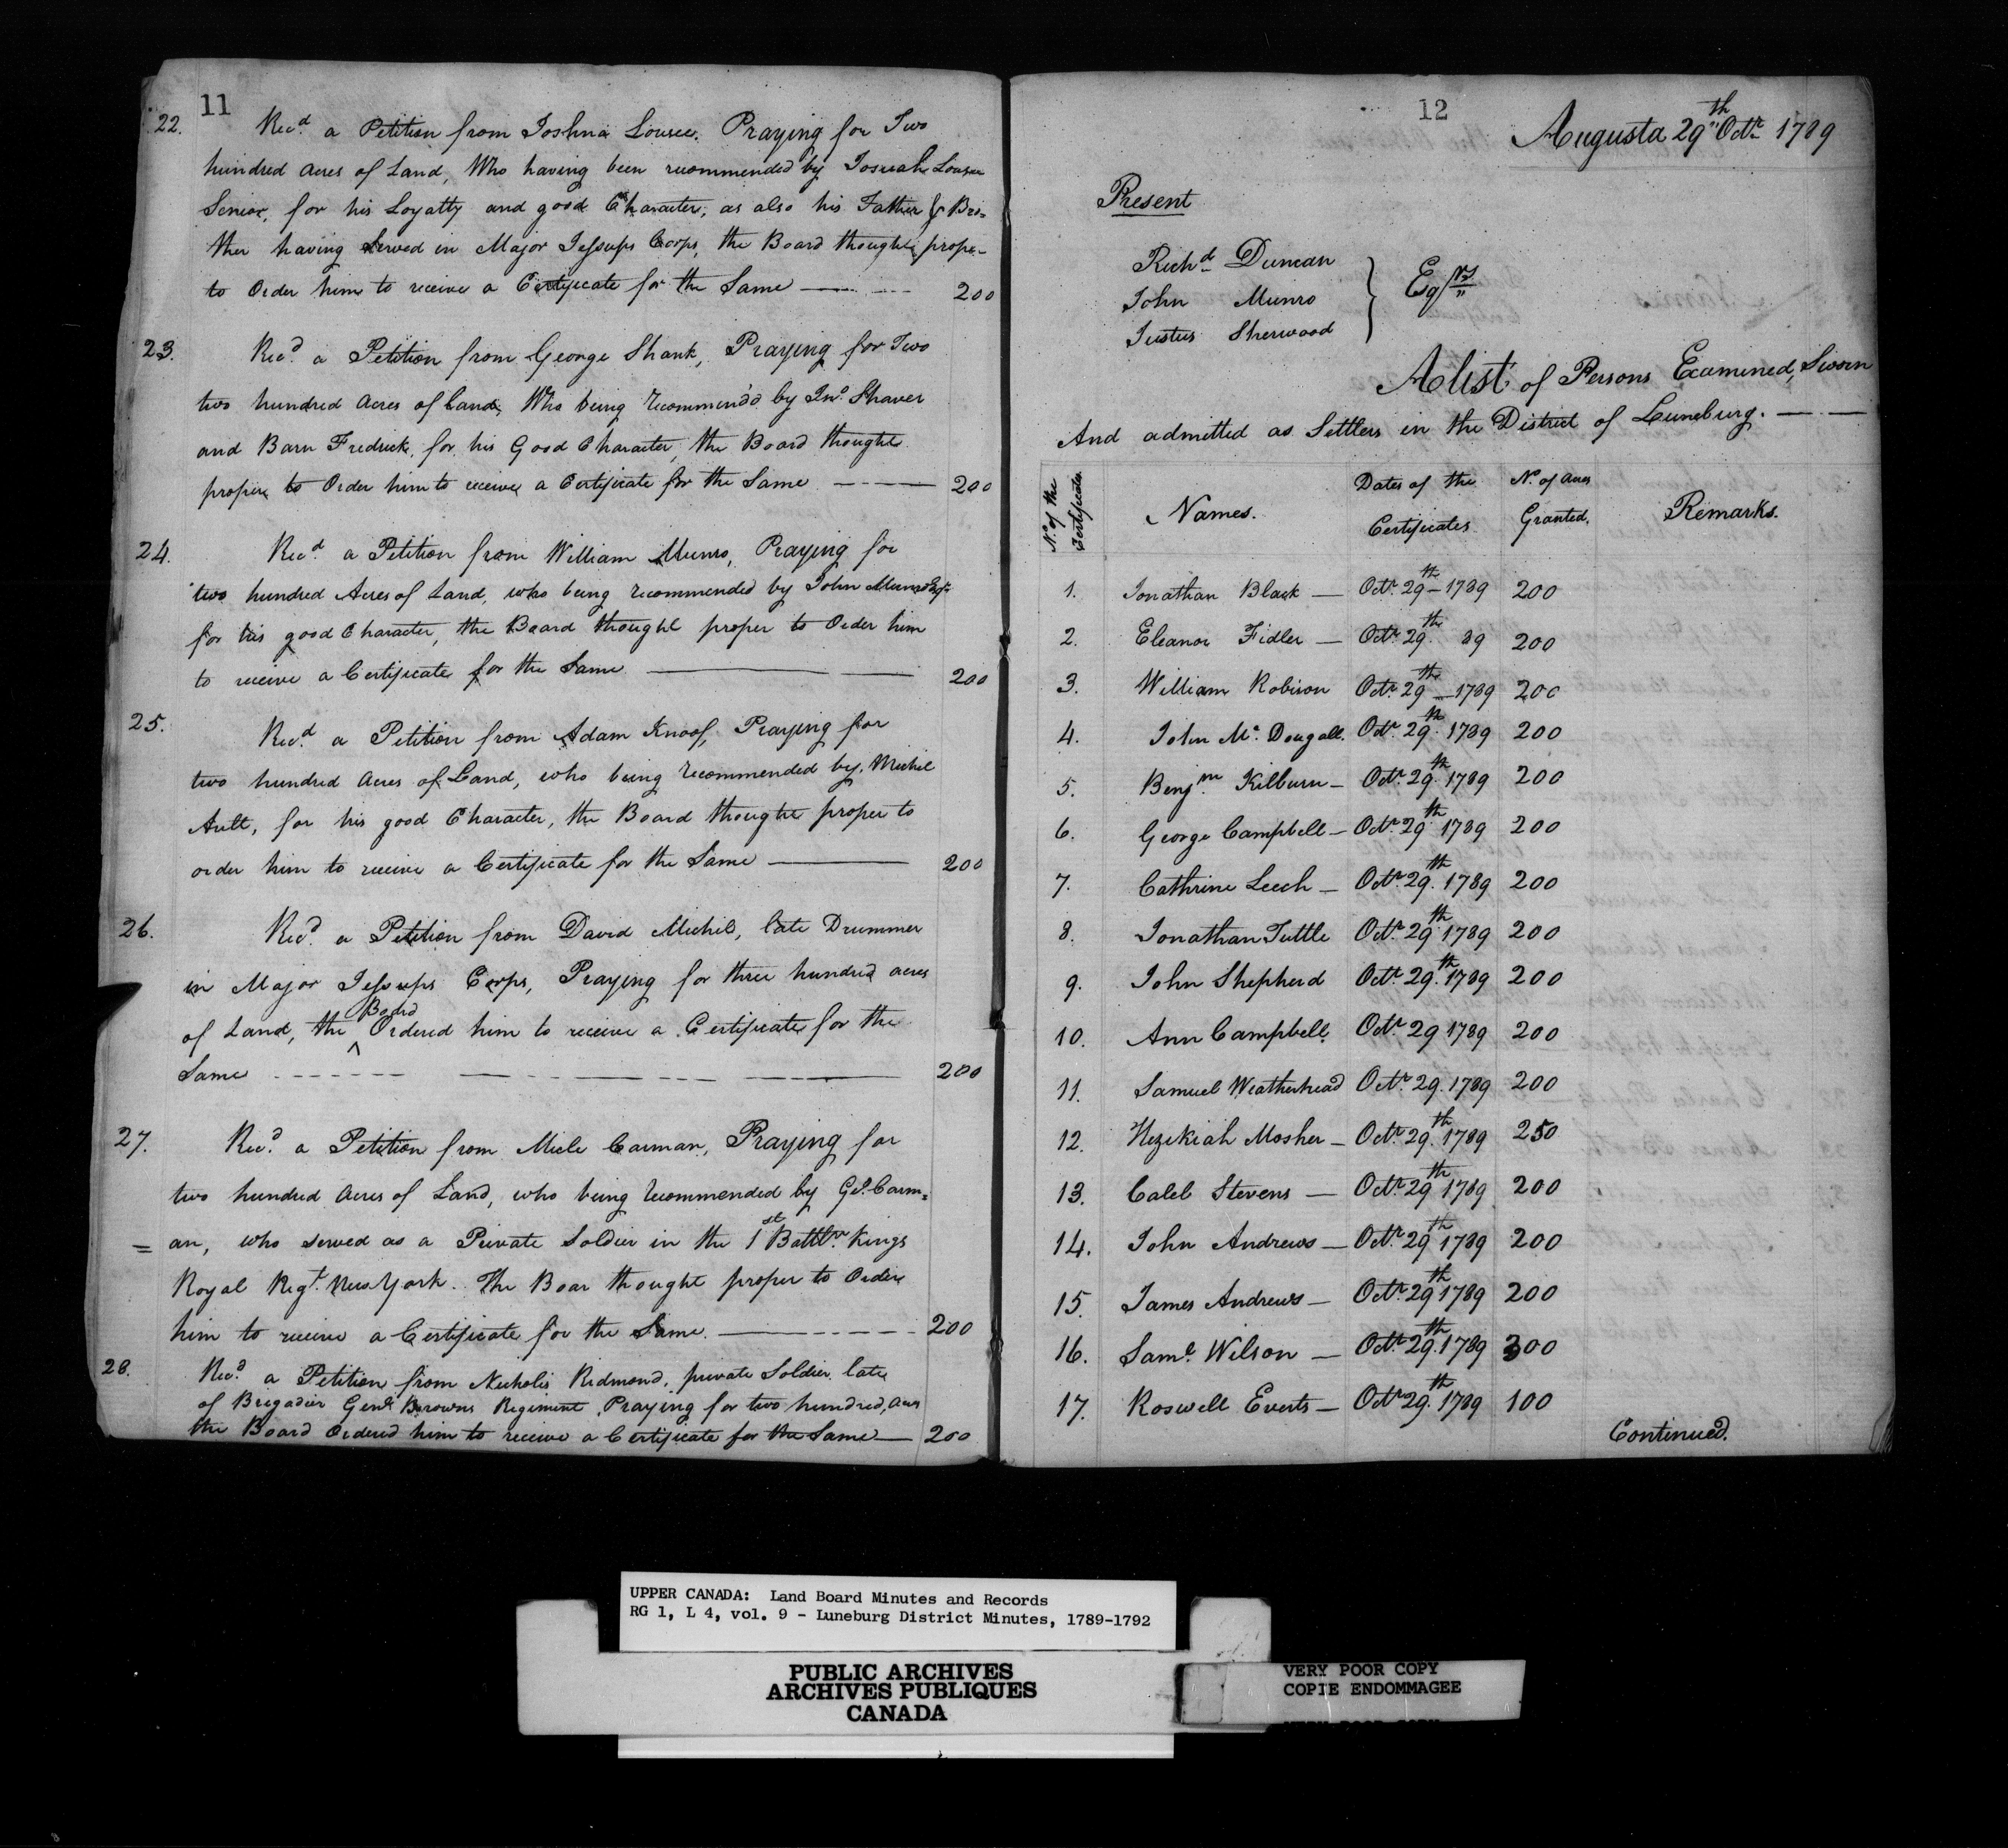 11
22. Rec.d a Petition from Joshua Lousee. Praying for Two
hundred acres of Land, Who having been recommended by Josuah Lousee
Senior, for his Loyalty and good Character, as also his Father & Bro=
ther having Served in Major Jessups Corps, the Board thought prope-
to Order him to receive a Certificate for the Same — 200
23. Rec.d a Petition from George Shank, Praying for Two
two hundred acres of Land, Who being recommend'd by Jno. Shaver
and Barn Fredrick, for his Good Character, the Board thought
proper to Order him to receive a Certificate for the Same — 200
24. Rec.d a Petition from William Munro, Praying for
two hundred Acres of Land, who being recommended by John Munro Esqr.
for his good Character, the Board thought proper to Order him
to receive a Certificate for the Same — 200
25. Rec.d a Petition from Adam Knoof, Praying for
two hundred acres of Land, who being recommended by Michel
Ault, for his good Character, the Board thought proper to
order him to receive a Certificate for the Same — 200
26. Rec.d a Petition from David Michel, late Drummer
in Major Jessups Corps, Praying for three hundred acres
of Land, the Board Ordered him to receive a Certificate for the
Same — 200
27. Rec.d a Petition from Micle Carman, Praying for
two hundred acres of Land, who being recommended by Geo. Carm=
= an, who served as a Private Soldier in the 1st Battln. Kings
Royal Regt. New York. The Boar thought proper to Order
him to receive a Certificate for the Same. — 200
28. Rec.d a Petition from Nicholis Redmond, private Soldier late
of Brigadier Genl. Browns Regiment, Praying for two hundred, acres
the Board Ordered him to receive a Certificate for the Same — 200
12
Augusta 29th Octr. 1789
Present
Richd. Duncan
John Munro
Justus Sherwood
Eqrs
A list of Persons Examined, Sworn
And admitted as Settlers in the District of Luneburg. —
No. of the Certificates Names. Dates of the Certificates No. of Acres Granted. Remarks.
1. Jonathan Black — Octr. 29th — 1789 200
2. Eleanor Fidler — Octr. 29th 89 200
3. William Robison Octr. 29th — 1789 200
4. John Mc. Dougall. Octr. 29th 1789 200
5. Benjm. Kilburn — Octr. 29th 1789 200
6. George Campbell — Octr. 29th 1789 200
7. Cathrine Leech — Octr. 29th 1789 200
8. Jonathan Tuttle Octr. 29th 1789 200
9. John Shepherd Octr. 29th 1789 200
10. Ann Campbell. Octr. 29 1789 200
11. Samuel Weatherhead Octr. 29. 1789 200
12. Hezekiah Mosher — Octr. 29th 1789 250
13. Caleb Stevens — Octr. 29th 1789 200
14. John Andrews — Octr. 29th 1789 200
15. James Andrews — Octr. 29th 1789 200
16. Saml. Wilson — Octr. 29th 1789 300
17. Roswell Everts — Octr. 29th 1789 100
Continued.
UPPER CANADA: Land Board Minutes and Records
RG 1, L 4, vol. 9 - Luneburg District Minutes, 1789-1792
PUBLIC ARCHIVES
ARCHIVES PUBLIQUES
CANADA
VERY POOR COPY
COPIE ENDOMMAGEE
VERY POOR COPY